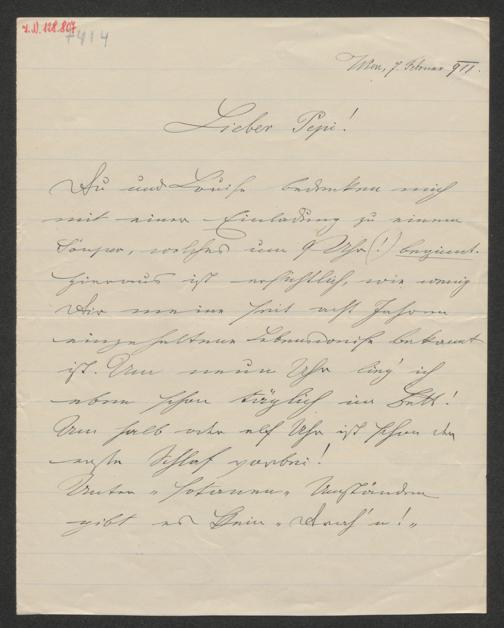 I.N. 128.807
7414
Wien, 7. Februar 911.
Lieber Pepi!
Du und Louise bedenken mich
mit einer Einladung zu einem
Souper, welches um 9 Uhr (!) beginnt.
Hieraus ist ersichtlich, wie wenig
Dir meine seit acht Jahren
eingehaltene Lebensweise bekannt
ist. Um neun Uhr lieg' ich
eben schon täglich im Bett!
Um halb oder elf Uhr ist schon der
erste Schlaf vorbei!
Unter „sotanen“ Umständen
gibt es kein „Drah'n!“